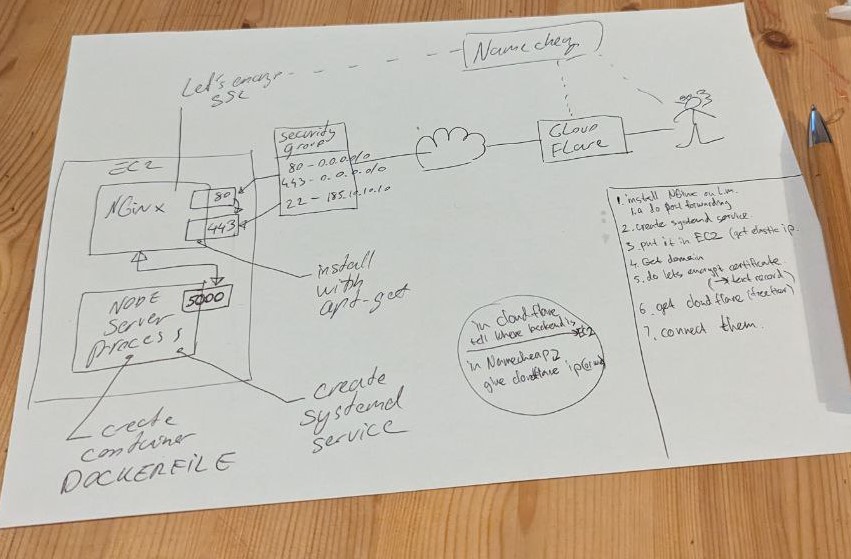 Namecheap
Let's encryp
SSL
security
group
80 - 0.0.0.0/0
443 - 0.0.0.0/0
22 - 185.10.10.10
CLOUD
FLARE
EC2
NGinx
80
443
install
with
apt-get
NODE
Server
process
5000
create
systemd
service
create
container
DOCKERFILE
in cloudflare
tell where backend is
EC2
in Namecheap
give cloudflare ip
1. install NGinx on
1.a do port forwarding
2. create systemd service.
3. put it in EC2 (get elastic ip.
4. Get domain
5. do lets encrypt certificate.
(→ text record)
6. get cloudflare (free tier)
7. connect them.